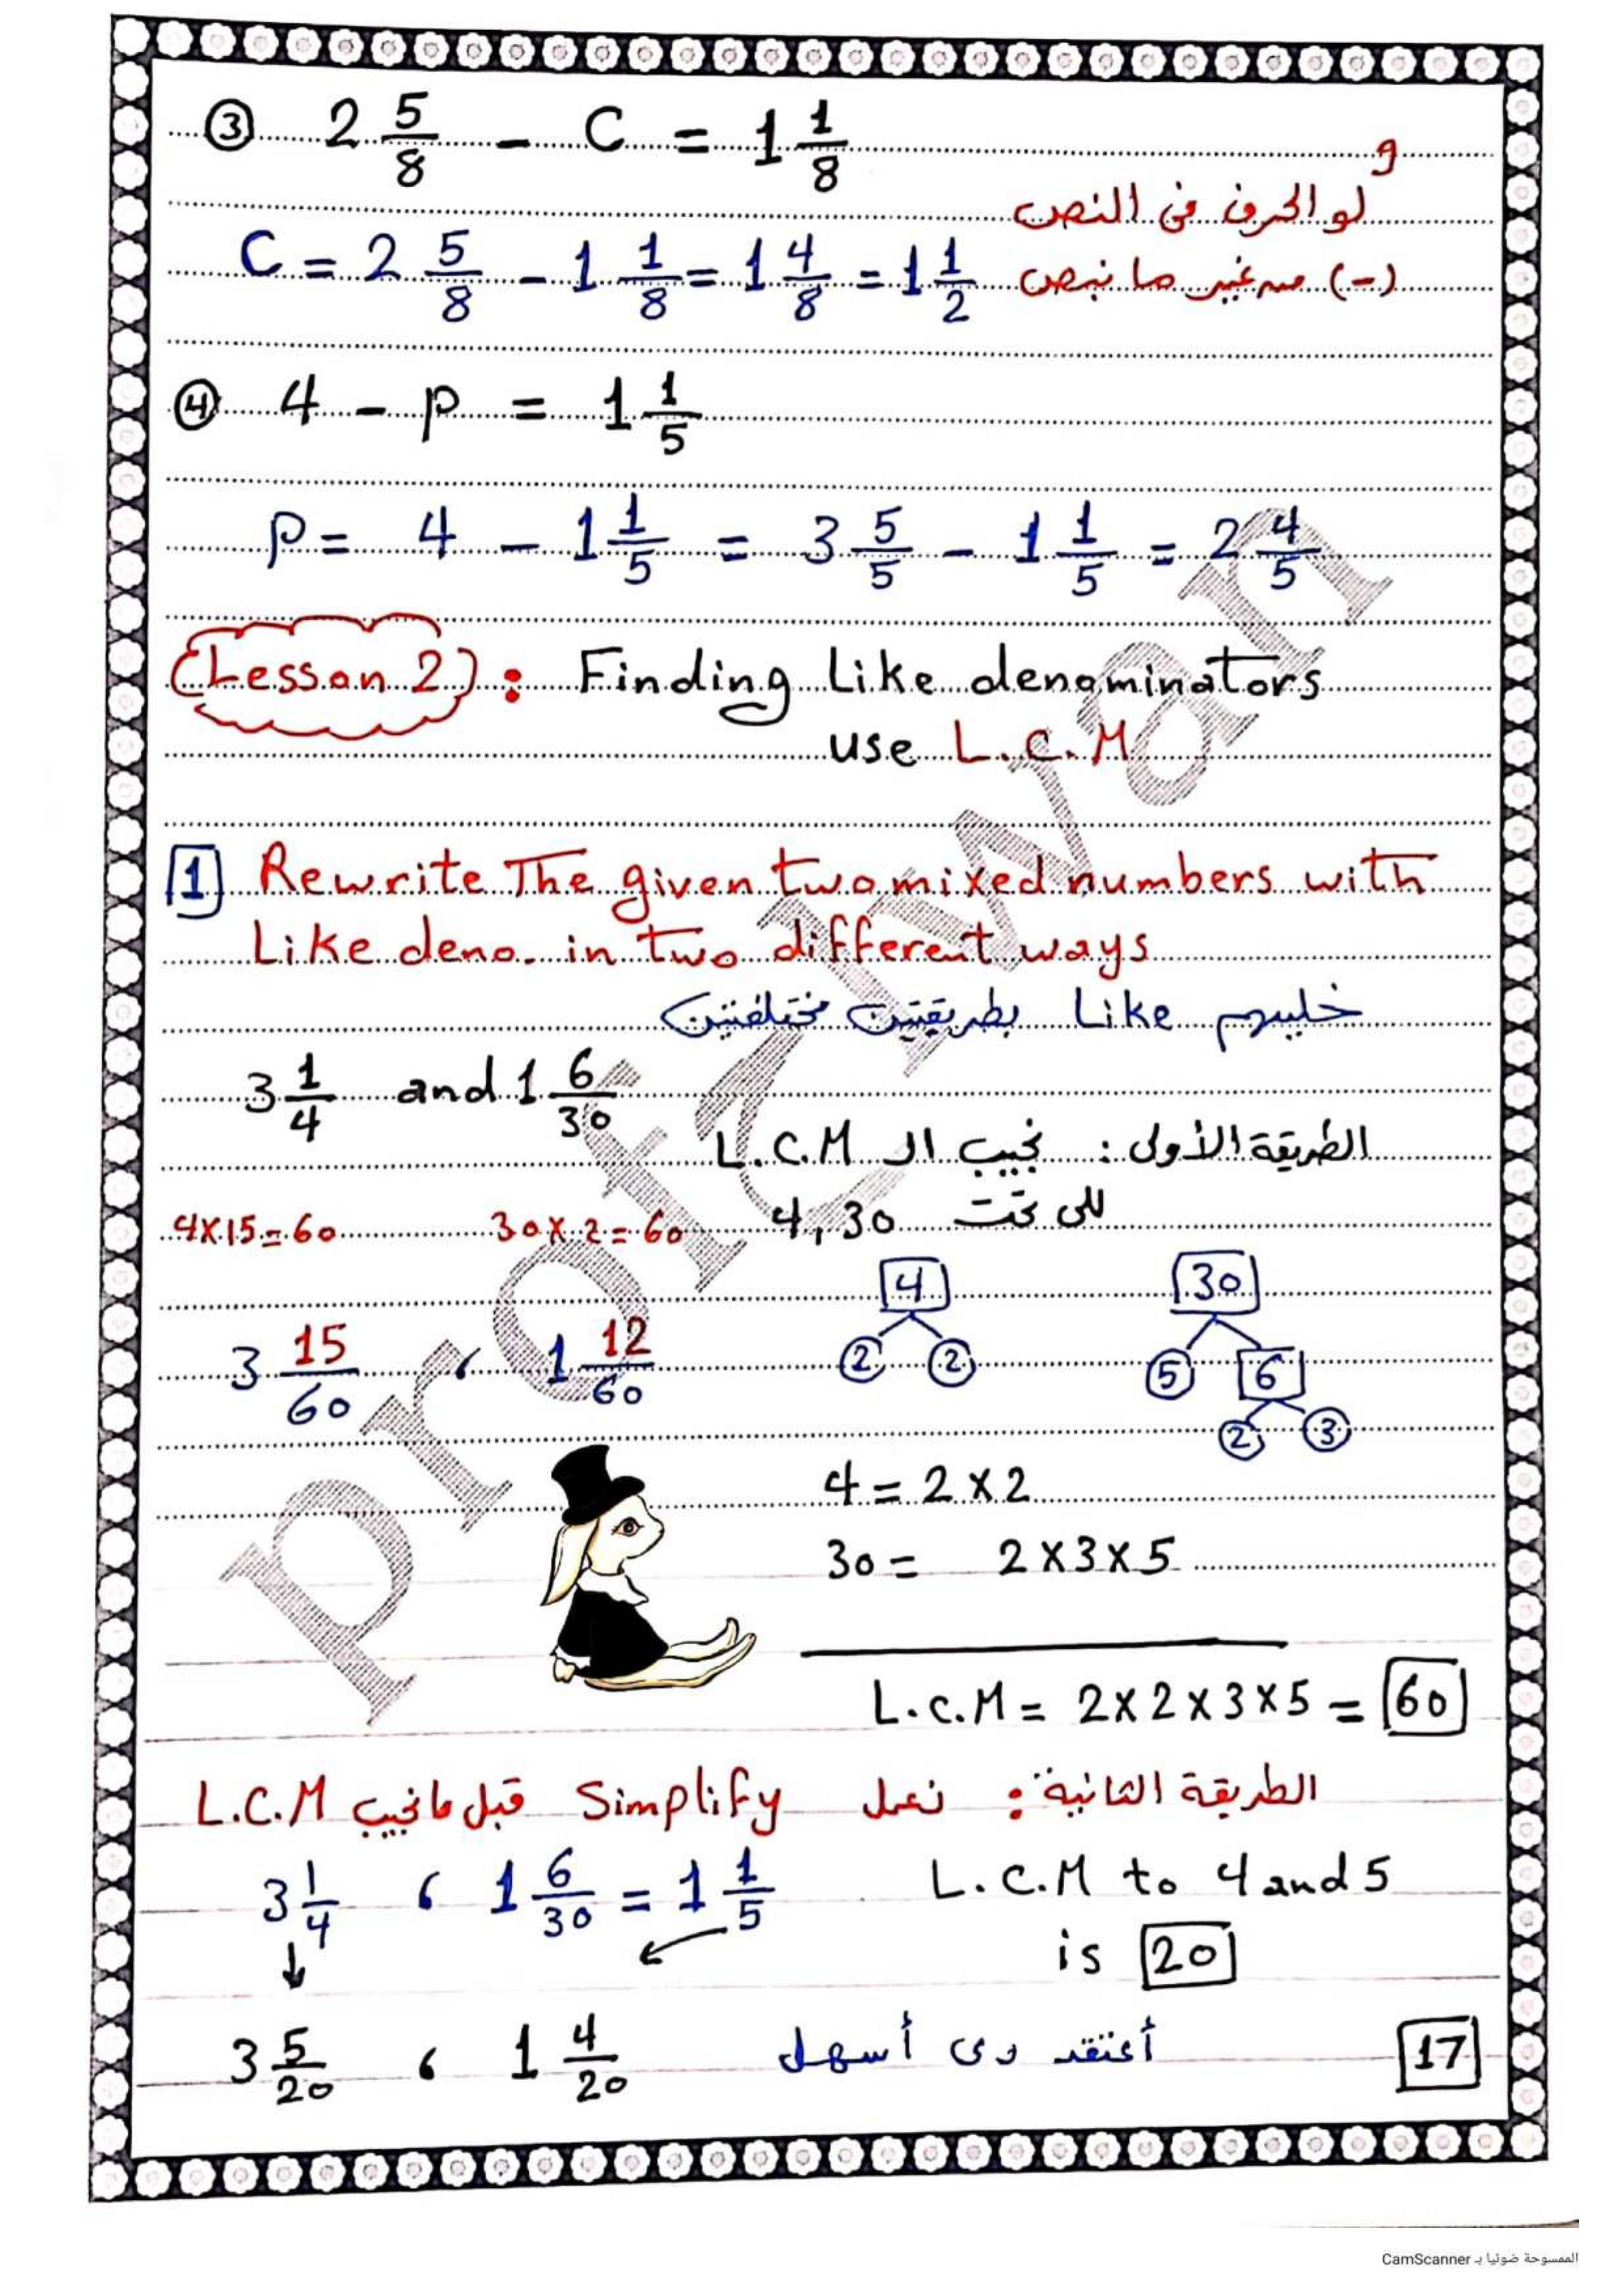 ③ 2 5/8 - C = 1 1/8
و
لو الحرف في النص
C = 2 5/8 - 1 1/8 = 1 4/8 = 1 1/2 (-) من غير ما نبص
④ 4 - P = 1 1/5
P = 4 - 1 1/5 = 3 5/5 - 1 1/5 = 2 4/5
(Lesson 2) : Finding Like denominators
use L.C.M
1 Rewrite The given two mixed numbers with
Like deno. in two different ways
خليهم Like بطريقتين مختلفتين
3 1/4 and 1 6/30
الطريقة الأولى : نجيب الـ L.C.M
للى تحت 4, 30
4×15=60 30×2=60
4 30
3 15/60 ، 1 12/60 2 2 5 6
2 3
4 = 2×2
30 = 2×3×5
L.C.M = 2×2×3×5 = 60
الطريقة الثانية : نعمل Simplify قبل ما نجيب L.C.M
3 1/4 ، 1 6/30 = 1 1/5 L.C.M to 4 and 5
is 20
3 5/20 ، 1 4/20 أعتقد دى أسهل 17
Prof Marwan
الممسوحة ضوئيا بـ CamScanner